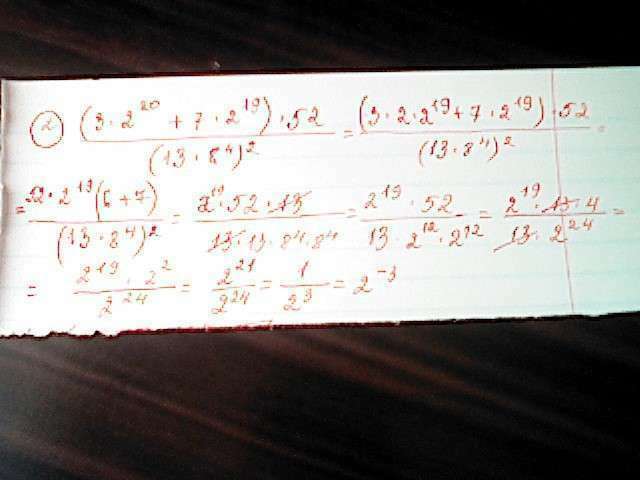 2 (3·2^20 + 7·2^19)·52 / (13·8^4)^2 = (3·2·2^19 + 7·2^19)·52 / (13·8^4)^2 =
= 52·2^19(6+7) / (13·8^4)^2 = 2^19·52·13 / 13·13·8^4·8^4 = 2^19·52 / 13·2^12·2^12 = 2^19·13·4 / 13·2^24 =
= 2^19·2^2 / 2^24 = 2^21 / 2^24 = 1 / 2^3 = 2^-3